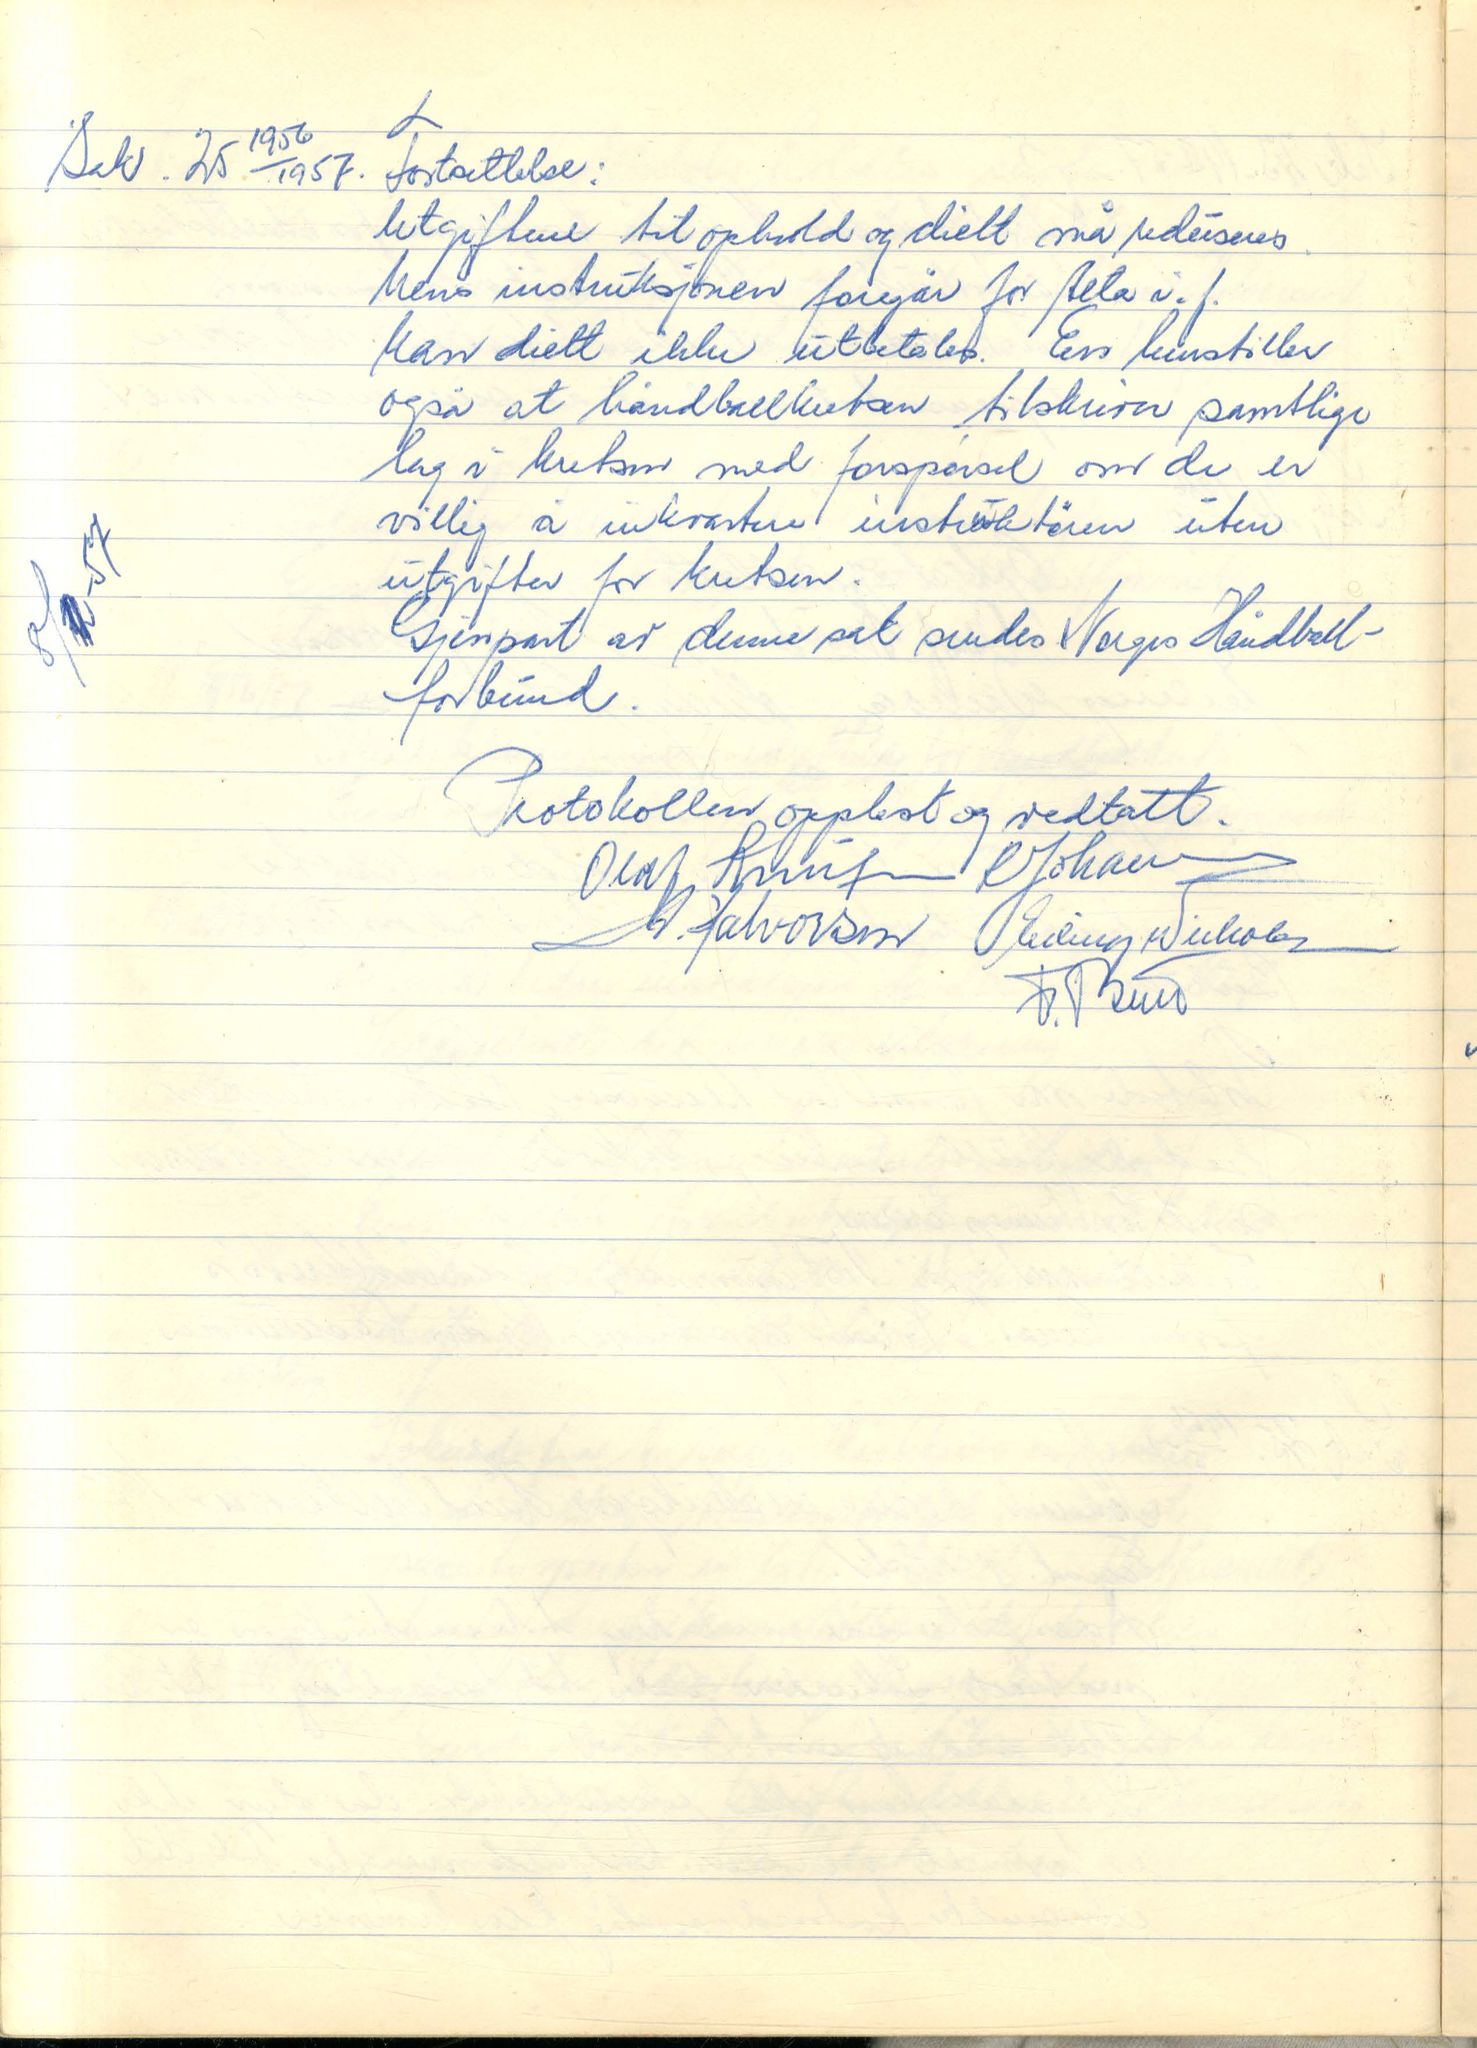 Sak. 25 1956/1957. Fortsettelse:
Utgiftene til ophold og diett må reduseres.
Mens instruksjonen foregår for Alta i.f.
kan diett ikke utbetales. En henstiller
også at håndballkretsen tilskriver samtlige
lag i kretsen med forspørsel om de er
villig å inkvartere instruktøren uten
utgifter for kretsen.
Gjenpart av denne sak sendes Norges Håndball-
forbund.
8/2-57
Protokollen opplest og vedtatt.
Olaf Johan
Halvorsen Erling Nicholas